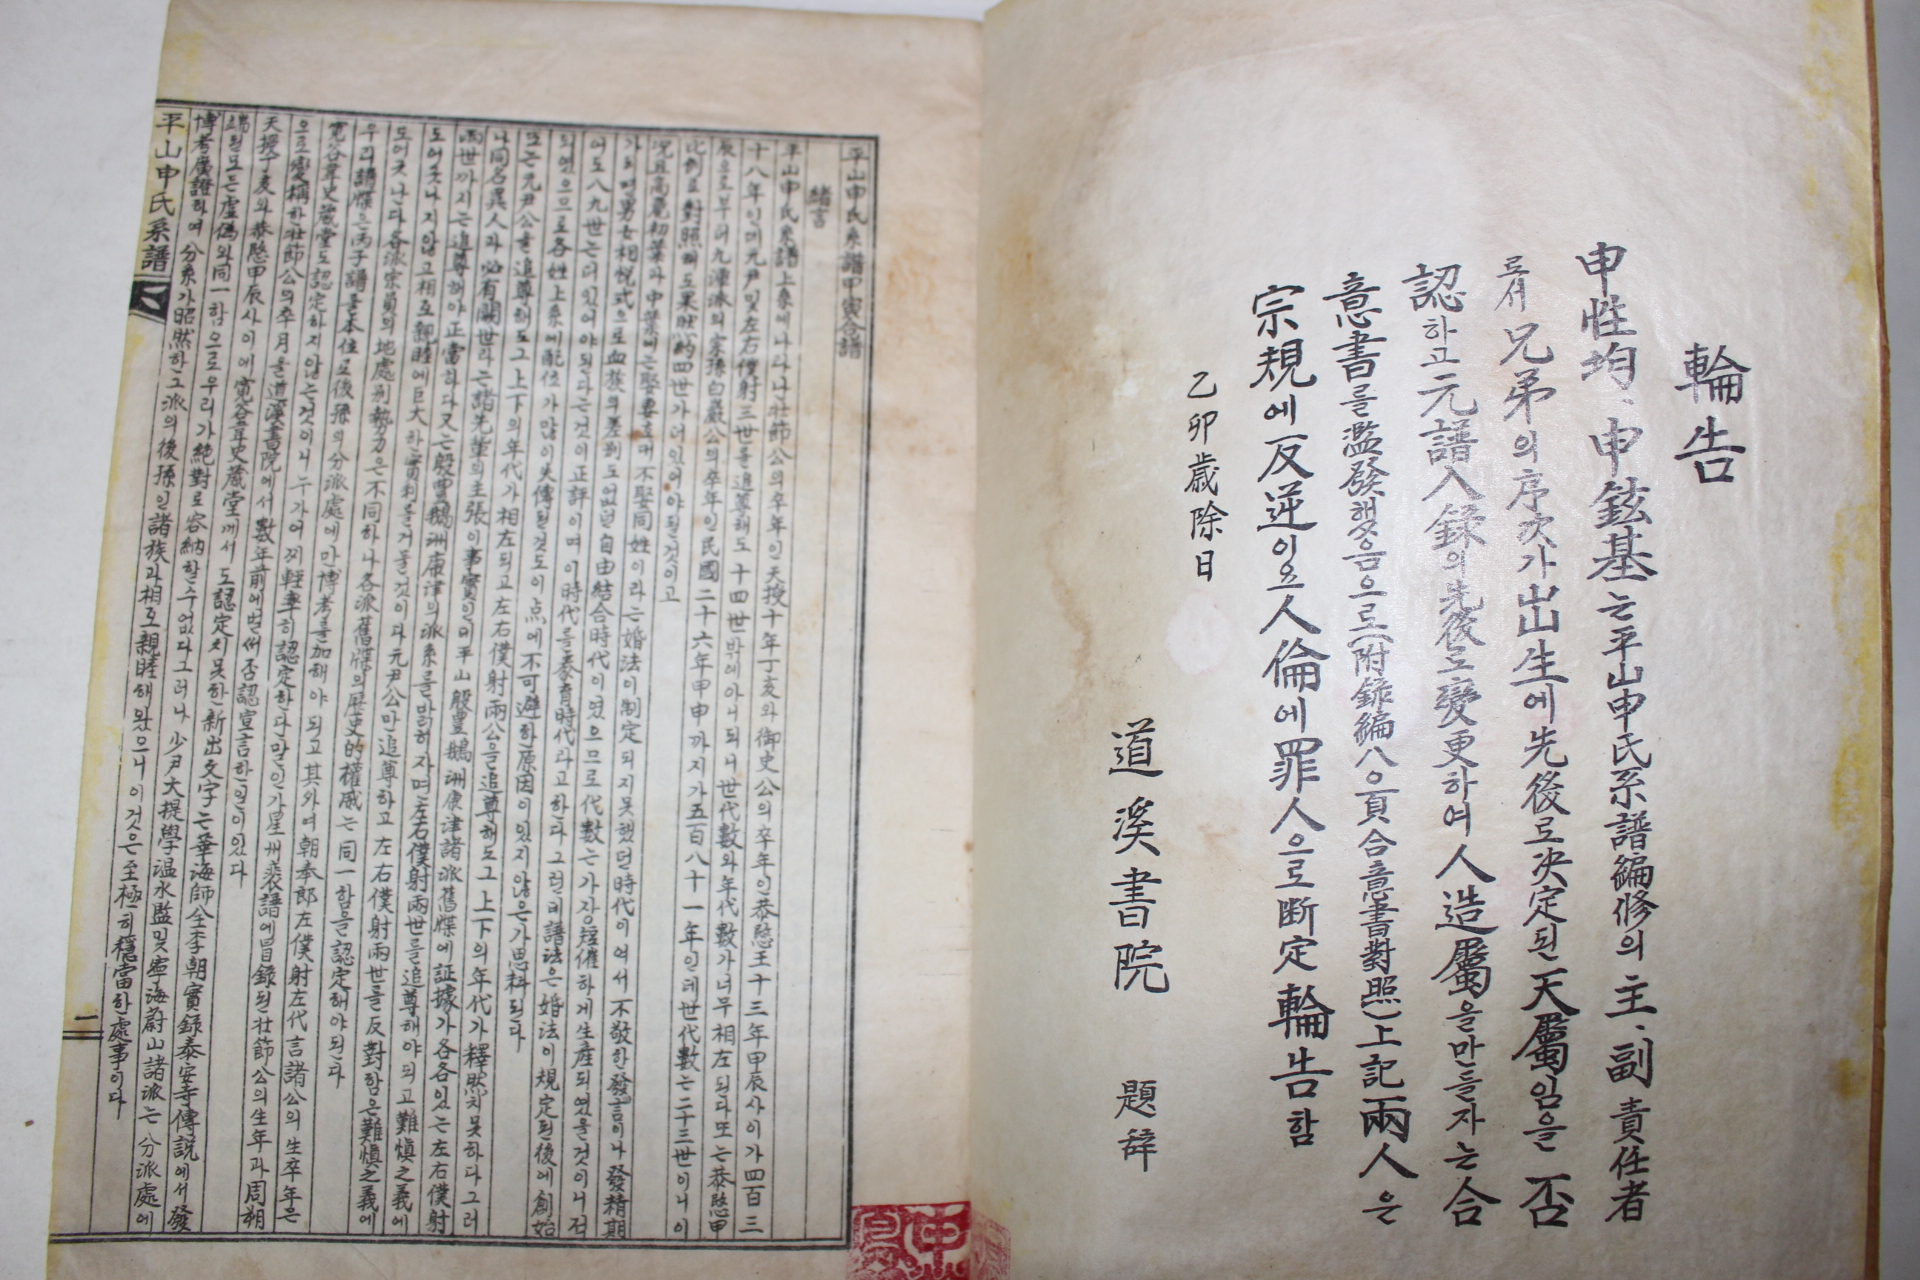 輪告
申性均、申鉉基는平山申氏系譜編修의主、副責任者
로서兄弟의序次가出生에先後로決定된天屬임을否
認하고元譜入録의先後도變更하여人造屬을만들자는合
意書를濫發했음으로(附録編八○頁合意書對照)上記兩人은
宗規에反逆이요人倫에罪人으로断定輪告함
乙卯歲除日
道溪書院 題辞
平山申氏系譜甲寅合譜
緖言
平山申氏系譜上系에나타난壯節公의卒年인天授十年丁亥와御史公의卒年인恭愍王十三年甲辰사이가四百三
十八年인데元尹및左右僕射三世를追尊해도十四世밖에아니되니世代數와年代數가너무相左된다또는恭愍甲
辰으로부터九潭派의宗孫白巖公의卒年인民國二十六年甲申까지가五百八十一年인데世代數는二十三世이니이
比例로對照해도果然約四世가더있어야될것이고
況且高麗初葉과中葉에는娶妻호대不娶同姓이라는婚法이制定되지못했던時代이여서不敬한發言이나發精期
가되면男女相悅式으로血族의差別도없던自由結合時代이였으므로代數는가장短催하게生産되였을것이니적
어도八九世는더있어야된다는것이正評이며이時代를泰育時代라고한다그런데譜法은婚法이規定된後에創始
되였으므로各姓上系에配位가많이失傳된것도이点에不可避한原因이있지않은가思料된다
또는元尹公을追尊해도그上下의年代가相左되고左右僕射兩公을追尊해도그上下의年代가釋然치못하다그러
나同名異人과必有闕世라는諸先輩의主張이事實인데平山殷豊鵝洲康津諸派舊牒에証據가各各있는左右僕射
兩世까지는追尊해야正當하다又는殷豊鵝洲康津의派系를밝히자면左右僕射兩世를追尊해야되고難愼之義에
도어긋나지않고相互親睦에巨大한實利를거둘것이다元尹公만追尊하고左右僕射兩世를反對함은難愼之義에
도어긋난다各派宗員의地處別勢力은不同하나各派舊牒의歷史的權威는同一함을認定해야된다
우리譜牒은丙子譜를本位로後孫의分派處에만博考를加해야되고其外에朝奉郎左僕射左代言諸公의生卒年은
寬谷耳史蔵堂도認定하지않는것이니누가어찌輕率히認定한다말인가星州裴譜에冒録된壮節公의生年과周朔
으로變稱한壯節公의卒月을道溪書院에서數年前에벌써否認宣言한일이있다
天授丁亥와恭愍甲辰사이에寬谷耳史蔵堂께서도認定치못한新出文字는華海師全李朝實録泰安寺傳説에서發
端된모든虛僞와同一함으로우리가絶對로容納할수없다그러나少尹大提學温水監및寧海蔚山諸派는分派處에
博考廣證하여分系가昭然한그派의後孫인諸族과相互親睦해왔으니이것은至極히穩當한處事이다
平山申氏系譜
一